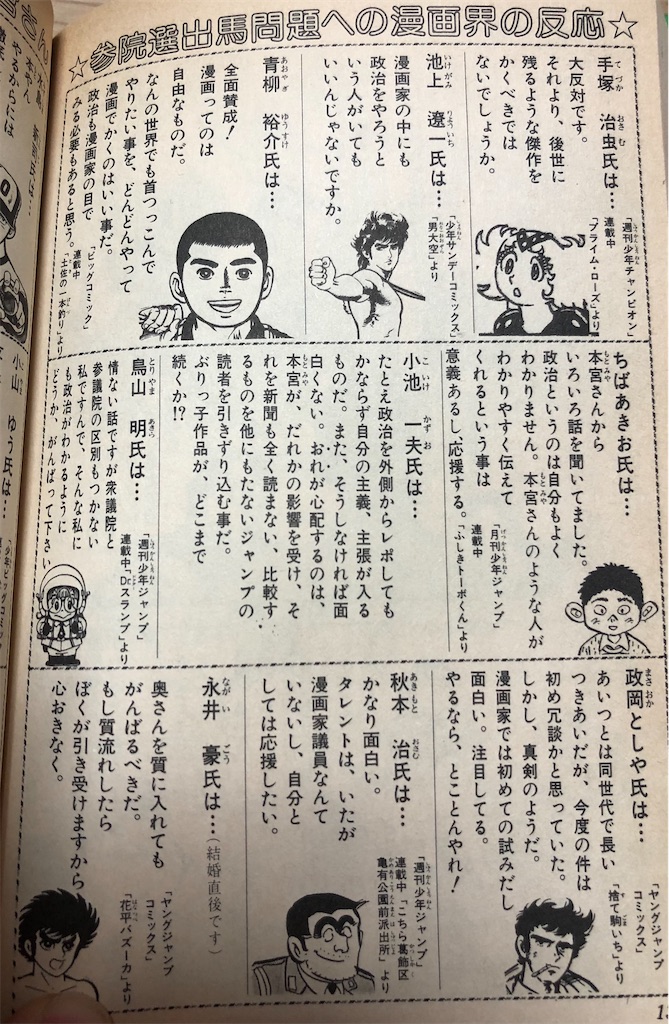 ☆参院選出馬問題への漫画界の反応☆
手塚 治虫氏は…
大反対です。
それより、後世に
残るような傑作を
かくべきでは
ないでしょうか。
「週刊少年チャンピオン」
連載中
「プライム・ローズ」より
池上 遼一氏は…
漫画家の中にも
政治をやろうと
いう人がいても
いいんじゃないですか。
「少年サンデーコミックス」
「男大空」より
青柳 裕介氏は…
全面賛成!
漫画ってのは
自由なものだ。
なんの世界でも首つっこんで
やりたい事を、どんどんやって
漫画でかくのはいい事だ。
政治も漫画家の目で
みる必要もあると思う。
「ビッグコミック」
連載中
「土佐の一本釣り」より
ちばあきお氏は…
本宮さんから
いろいろ話を聞いてました。
政治というのは自分もよく
わかりません。本宮さんのような人が
わかりやすく伝えて
くれるという事は
意義あるし応援する。
「月刊少年ジャンプ」
連載中
「ふしきトーボくん」より
小池 一夫氏は…
たとえ政治を外側からレポしても
かならず自分の主義、主張が入る
ものだ。また、そうしなければ面
白くない。おれが心配するのは、
本宮が、だれかの影響を受け、そ
れを新聞も全く読まない、比較す
るものを他にもたないジャンプの
読者を引きずり込む事だ。
ぶりっ子作品が、どこまで
続くか!?
鳥山 明氏は…
情ない話ですが衆議院と
参議院の区別もつかない
私ですんで、そんな私に
も政治がわかるように
どうか、がんばって下さい。
「週刊少年ジャンプ」
連載中「Dr.スランプ」より
政岡としや氏は…
あいつとは同世代で長い
つきあいだが、今度の件は
初め冗談かと思っていた。
しかし、真剣のようだ。
漫画家では初めての試みだし
面白い。注目してる。
やるなら、とことんやれ!
「ヤングジャンプ
コミックス」
「捨て駒いち」より
秋本 治氏は…
かなり面白い。
タレントは、いたが
漫画家議員なんて
いないし、自分と
しては応援したい。
「週刊少年ジャンプ」
連載中「こちら葛飾区
亀有公園前派出所」より
永井 豪氏は…(結婚直後です)
奥さんを質に入れても
がんばるべきだ。
もし質流れしたら
ぼくが引き受けますから
心おきなく。
「ヤングジャンプ
コミックス」
「花平バズーカ」より
やるからには
小山 ゆう氏は…